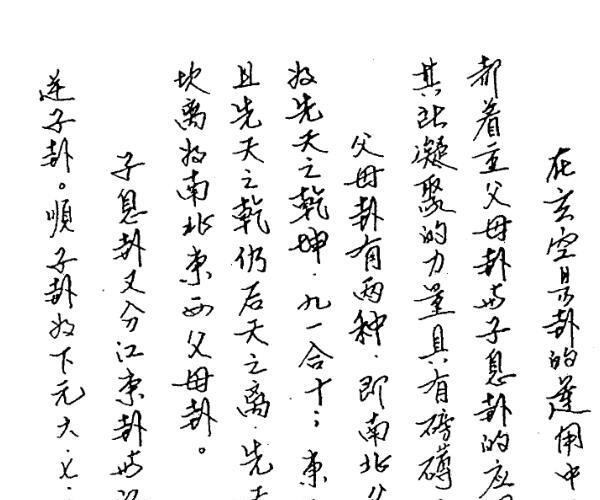 在玄空易卦的運用中
都着重父母卦与子息卦的应用
其跃凝聚的力量具有磅礴
父母卦有两种．即南北父
为先天之乾坤．九一合十；东
且先天之乾仍后天之离．先天
坎离为南北东西父母卦。
子息卦又分江东卦与江
逆子卦。順子卦为下元六．七．